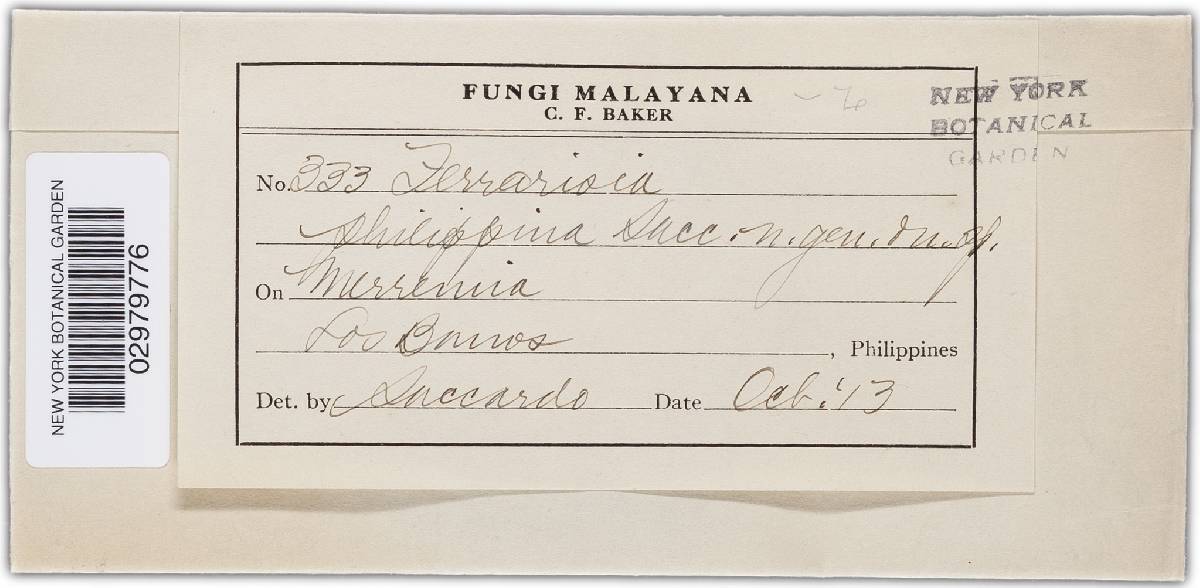 FUNGI MALAYANA
C. F. BAKER
NEW YORK
BOTANICAL
GARDEN
No. 333 Ferrarisia
philippina Sacc. n. gen. & n. sp.
On Merremia
Los Banos, Philippines
Det. by Saccardo Date Oct. '13
NEW YORK BOTANICAL GARDEN
02979776